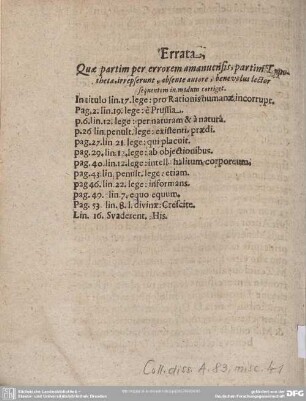 Errata,
Quæ partim per errorem amanuensis, partim Typo-
thetæ irrepserunt, absente autore, benevolus lector
sequentem in modum corriget.
In titulo lin.17. lege: pro Rationis humanæ incorrupt.
Pag. 2. lin.19. lege: è Prussia.
p.6. lin.12. lege: per naturam & à naturâ.
p.26 lin. penult. lege: existenti, prædi.
pag.27. lin 21. lege: qui placuit.
pag.29. lin.17. lege: ab objectionibus.
pag.40. lin.12. lege: intell. halium, corporeum.
pag.43. lin. penult. lege: etiam.
pag 46. lin.22. lege: informans.
pag. 49. lin.7. equo equum.
Pag. 53. lin. 8. l. divinæ: Crescite.
Lin. 16. Svaderent. His.
Coll. diss. A. 83, misc. 41